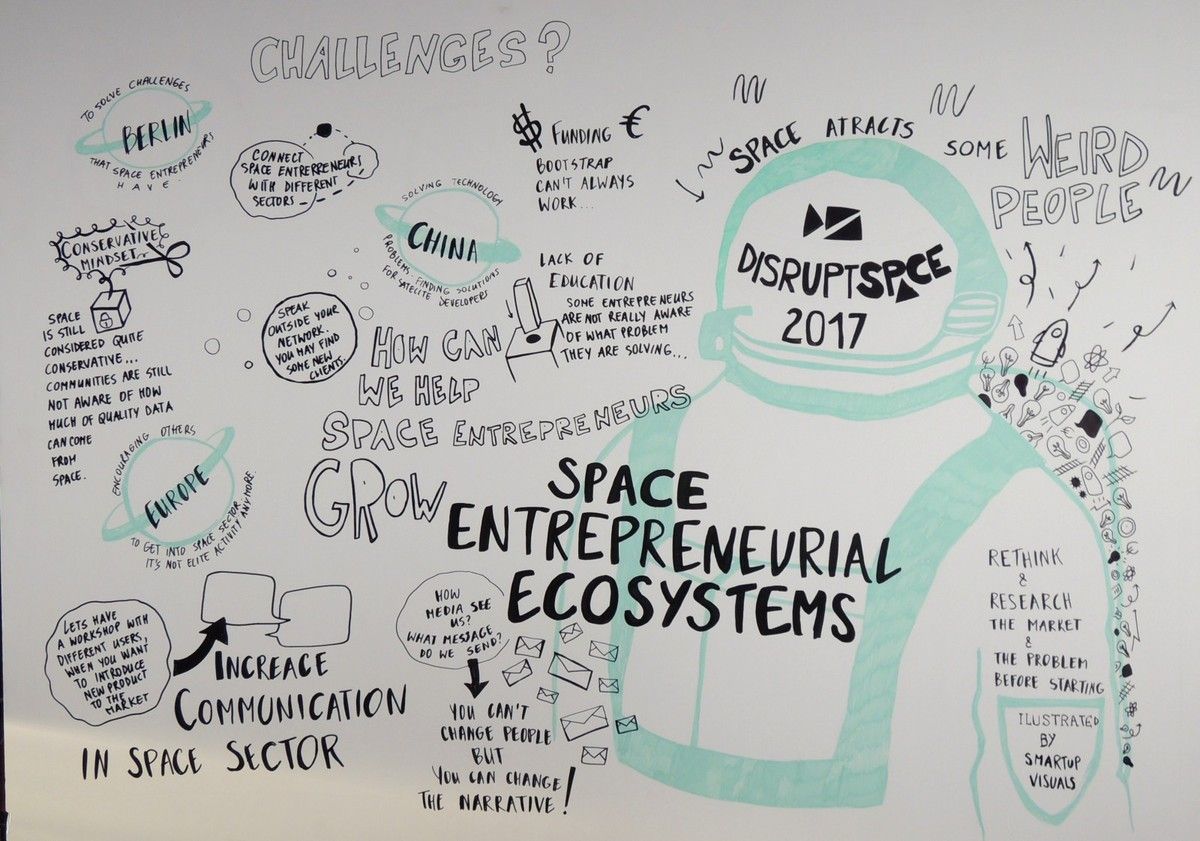 CHALLENGES?
TO SOLVE CHALLENGES
BERLIN
THAT SPACE ENTREPRENEURS
HAVE
CONNECT
SPACE ENTERPRENEURS
WITH DIFFERENT
SECTORS
$ FUNDING €
BOOTSTRAP
CAN'T ALWAYS
WORK...
SPACE ATRACTS SOME WEIRD
PEOPLE
DISRUPTSPACE
2017
CONSERVATIVE
MINDSET
SPACE
IS STILL
CONSIDERED QUITE
CONSERVATIVE...
COMMUNITIES ARE STILL
NOT AWARE OF HOW
MUCH OF QUALITY DATA
CAN COME
FROM
SPACE.
SOLVING TECHNOLOGY
CHINA
PROBLEMS. FINDING SOLUTIONS
FOR SATELITE DEVELOPERS
LACK OF
EDUCATION
SOME ENTREPRENEURS
ARE NOT REALLY AWARE
OF WHAT PROBLEM
THEY ARE SOLVING...
SPEAK
OUTSIDE YOUR
NETWORK.
YOU MAY FIND
SOME NEW
CLIENTS.
HOW CAN
WE HELP
SPACE ENTREPRENEURS
GROW
ENCOURAGING OTHERS
EUROPE
TO GET INTO SPACE SECTOR
IT'S NOT ELITE ACTIVITY ANYMORE.
SPACE
ENTREPRENEURIAL
ECOSYSTEMS
LETS HAVE
A WORKSHOP WITH
DIFFERENT USERS,
WHEN YOU WANT
TO INTRODUCE
NEW PRODUCT
TO THE
MARKET
INCREACE
COMMUNICATION
IN SPACE SECTOR
HOW
MEDIA SEE
US?
WHAT MESSAGE
DO WE SEND?
YOU CAN'T
CHANGE PEOPLE
BUT
YOU CAN CHANGE
THE NARRATIVE!
RETHINK
&
RESEARCH
THE MARKET
&
THE PROBLEM
BEFORE STARTING
ILUSTRATED
BY
SMARTUP
VISUALS